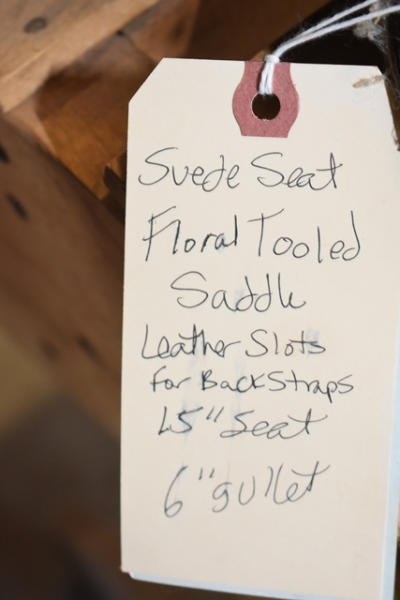 Suede Seat
Floral Tooled
Saddle
Leather Slots
for Back Straps
15" Seat
6" gullet